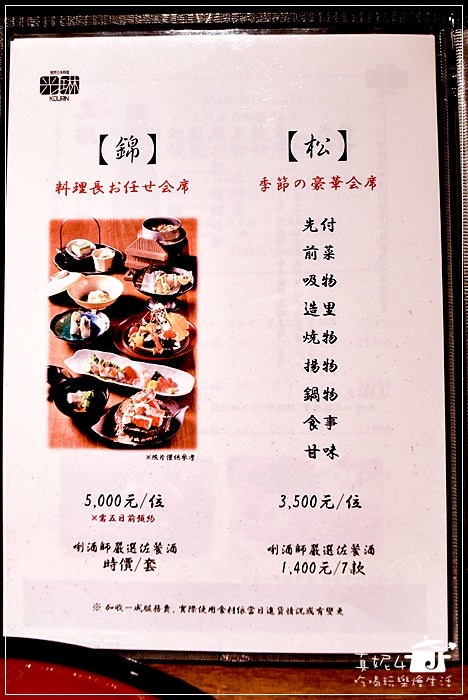 光琳
KOURIN
【錦】
料理長お任せ会席
※照片僅供參考
5,000元/位
※需五日前預約
唎酒師嚴選佐餐酒
時價/套
【松】
季節の豪華会席
先付
前菜
吸物
造里
焼物
揚物
鍋物
食事
甘味
3,500元/位
唎酒師嚴選佐餐酒
1,400元/7款
※ 加收一成服務費，實際使用食材依當日進貨情況或有變更
真妮4J
吃喝玩樂燴生活